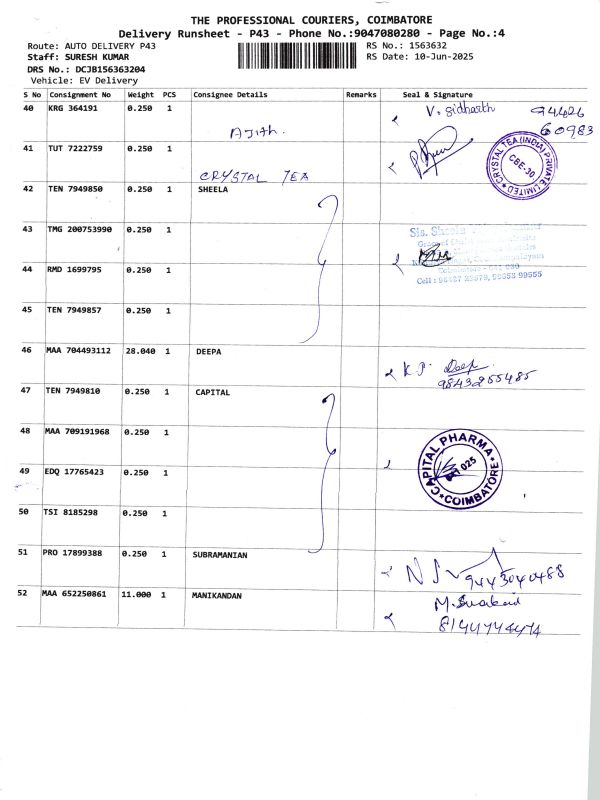 THE PROFESSIONAL COURIERS, COIMBATORE
Delivery Runsheet - P43 - Phone No.:9047080280 - Page No.:4
Route: AUTO DELIVERY P43 RS No.: 1563632
Staff: SURESH KUMAR RS Date: 10-Jun-2025
DRS No.: DCJB156363204
Vehicle: EV Delivery
S No Consignment No Weight PCS Consignee Details Remarks Seal & Signature
40 KRG 364191 0.250 1 Ajith. V. Sidharth 94426
60983
41 TUT 7222759 0.250 1 CRYSTAL TEA
CRYSTAL TEA (INDIA) PRIVATE LIMITED CBE-30
42 TEN 7949850 0.250 1 SHEELA
43 TMG 200753990 0.250 1
Sis.
44 RMD 1699795 0.250 1
Coimbatore
Cell :
45 TEN 7949857 0.250 1
46 MAA 704493112 28.040 1 DEEPA K.P. Deep
9843255485
47 TEN 7949810 0.250 1 CAPITAL
48 MAA 709191968 0.250 1
CAPITAL PHARMA COIMBATORE 025
49 EDQ 17765423 0.250 1
50 TSI 8185298 0.250 1
51 PRO 17899388 0.250 1 SUBRAMANIAN
9443040488
52 MAA 652250861 11.000 1 MANIKANDAN M.
8144774474